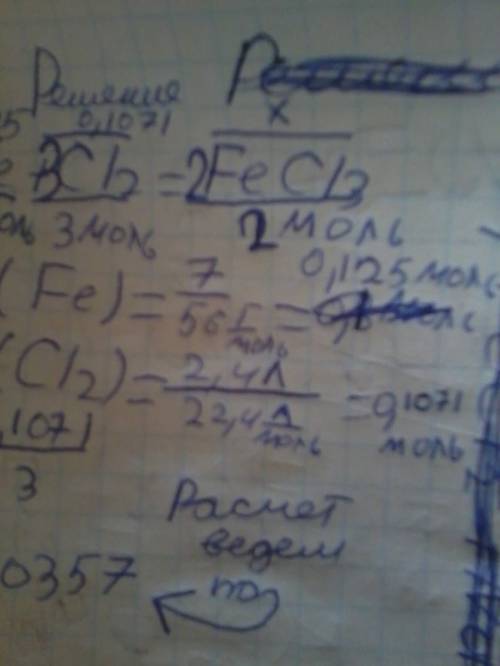 Решение
0,1071 x
3Cl2 = 2FeCl3
3 моль 2 моль
(Fe) = 7 / 56 г/моль = 0,125 моль
(Cl2) = 2,4 л / 22,4 л/моль = 0,1071 моль
,1071 / 3
0357
Расчет
ведем
по